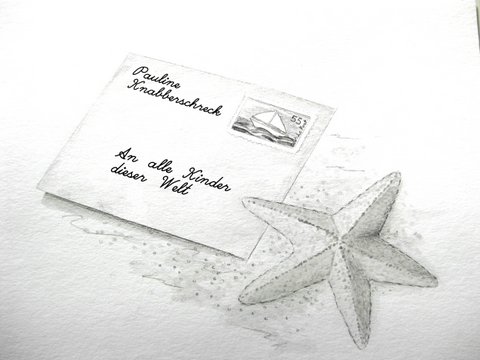 Pauline
Knabberschreck
55
An alle Kinder
dieser Welt